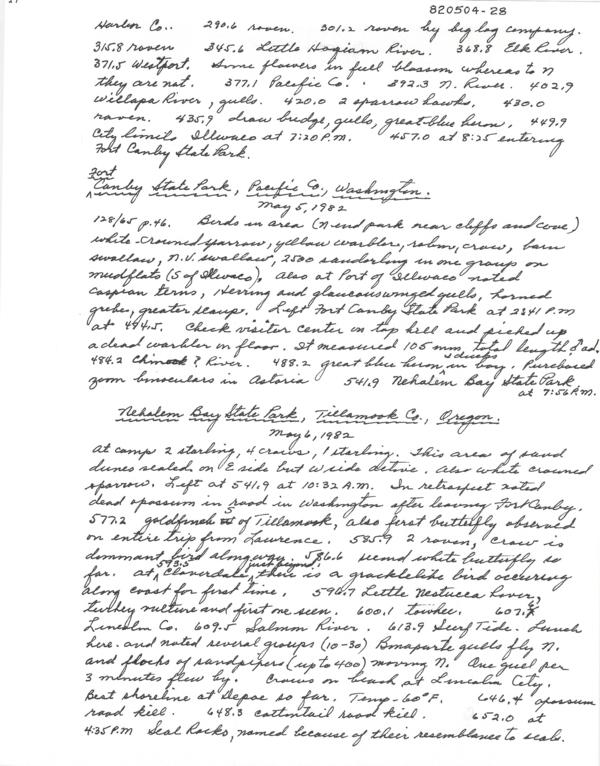 820504-28
Harbor Co.. 290.6 raven. 301.2 raven by big log company.
315.8 raven 345.6 Little Hoqiam River. 368.8 Elk River.
371.5 Westport. Some flowers in full blossom whereas to N
they are not. 377.1 Pacific Co. 392.3 N. River. 402.9
Willapa River, gulls. 420.0 2 sparrow hawks. 430.0
raven. 435.9 draw bridge, gulls, great blue heron. 449.9
City limits Illwaco at 7:20 P.M. 457.0 at 8:25 entering
Fort Canby State Park.
Fort Canby State Park, Pacific Co., Washington.
May 5, 1982
128/65 p.46. Birds in area (N end park near cliffs and cove)
white-crowned sparrow, yellow warbler, robin, crow, barn
swallow, N.V. swallow, 2500 sanderling in one group on
mudflats (S of Illwaco). Also at Port of Illwaco noted
caspian terns, Herring and glaucous winged gulls, horned
grebe, greater scaup. Left Fort Canby State Park at 2:41 P.M
at 474.5. Check visitor center on top hill and picked up
a dead warbler on floor. It measured 105 mm total length ♂ ad.
484.2 Chinook ? River. 488.2 great blue heron, in bay. Purchased
zoom binoculars in Astoria 541.9 Nehalem Bay State Park
at 7:56 P.M.
Nehalem Bay State Park, Tillamook Co., Oregon.
May 6, 1982
At camp 2 starling, 4 crows, 1 starling. This area of sand
dunes sealed on E side but W side active. Also white crowned
sparrow. Left at 541.9 at 10:32 A.M. In retrospect noted
dead opossum in road in Washington after leaving Fort Canby.
577.2 goldfinch S of Tillamook, also first butterfly observed
on entire trip from Lawrence. 585.9 2 raven, crow is
dominant bird along way. 586.6 second white butterfly so
far. At 593.5 just beyond Cloverdale, there is a gracklelike bird occurring
along coast for first time. 596.7 Little Nestucca River,
turkey vulture and first one seen. 600.1 towhee. 607.8
Lincoln Co. 609.5 Salmon River. 613.9 Surf Tide. Lunch
here and noted several groups (10-30) Bonaparte gulls fly N.
and flocks of sandpipers (up to 400) moving N. One gull per
3 minutes flew by. Crows on beach at Lincoln City.
Best shoreline at Depoe so far. Temp - 60°F. 646.4 opossum
road kill. 648.3 cottontail road kill. 652.0 at
4:35 P.M Seal Rocks, named because of their resemblance to seals.